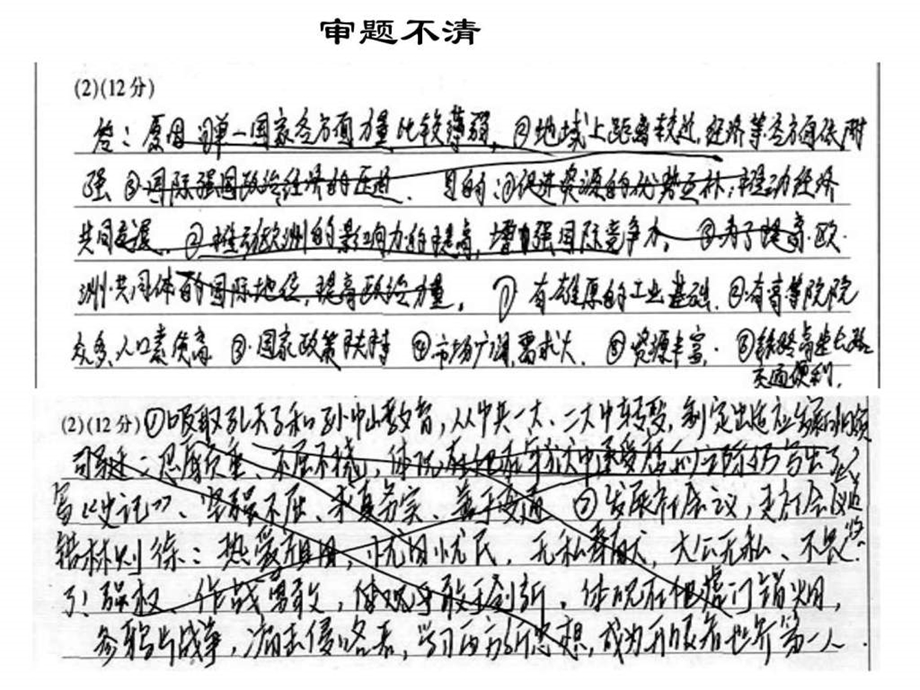 审题不清
(2)(12分)
答：原因①单一国家各方面力量比较薄弱，②地域上距离较近，经济等各方面依附
强③国际强国政治经济的压迫．目的：①促进资源的优势互补，推动经济
共同发展．②推动欧洲的影响力的提高，增强国际竞争力．③为了提高欧
洲共同体的国际地位，提高政治力量。①有雄厚的工业基础．②有高等院院
众多，人口素质高 ③国家政策扶持 ④市场广阔，需求大．⑤资源丰富．⑥铁路高速公路
交通便利．
(2)(12分)①吸取孔夫子和孙中山教育，从中共一大、二大中转变，制定出适应
司马迁：忍辱负重、不屈不挠，体现在他在
写《史记》、坚强不屈、求真务实、善于变通 ②发展社会
林则徐：热爱祖国，忧国忧民，无私奉献，大公无私、不畏
强权，作战勇敢，体现了敢于创新，体现在他虎门销烟，
参加战争，抗击侵略者，学习西方新思想，成为开眼看世界第一人．